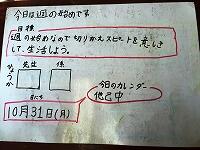 今日は週の始めです
目標
週の始めなので切りかえスピードを意識
して、生活しよう。
先生
係
ひょうか
今日のカレンダー
他己中
日にち
10月31日(月)